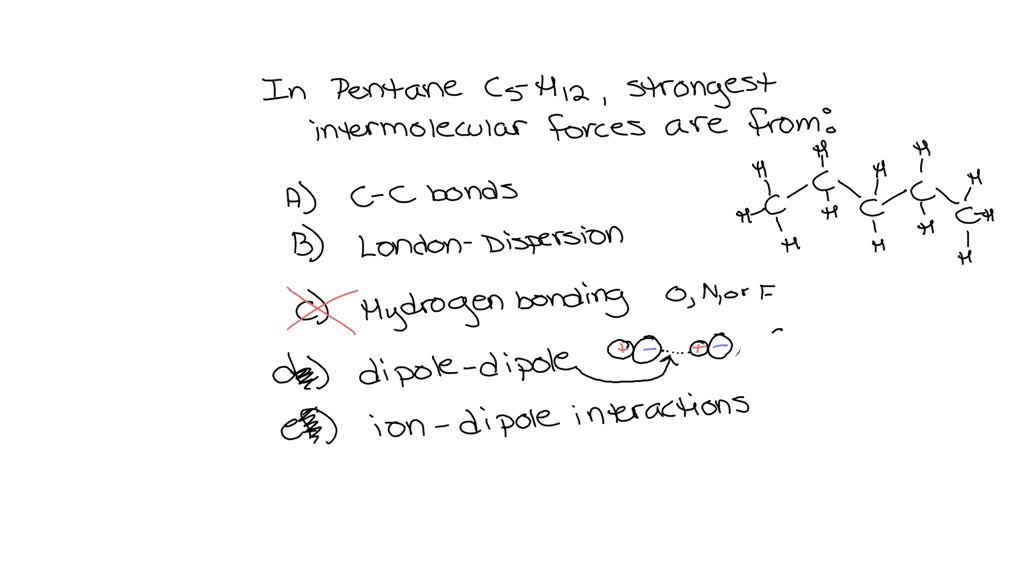 In Pentane C5H12, strongest
intermolecular forces are from:
A) C-C bonds
B) London-Dispersion
C) Hydrogen bonding O, N, or F
d) dipole-dipole + - ..... + -
e) ion-dipole interactions
H H H H H
C C C C C
H H H H H H H